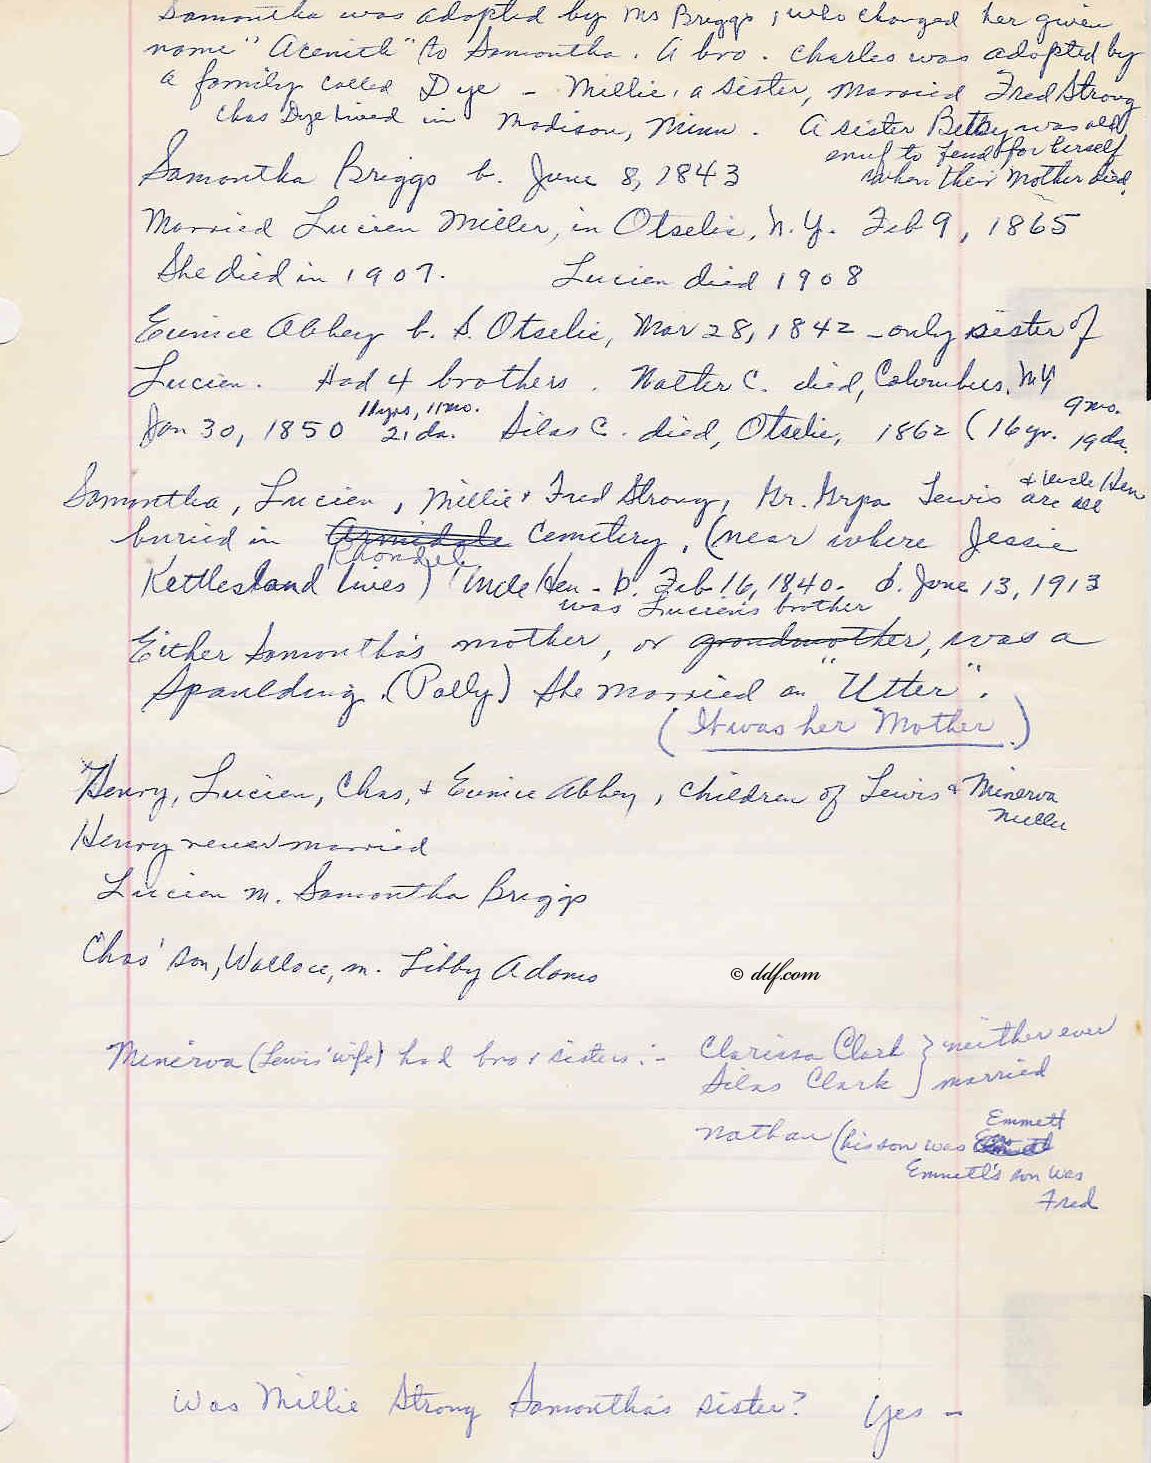 Samontha was adopted by Ms Briggs, who changed her given
name "Acenith" to Samontha. A bro. Charles was adopted by
a family called Dye - Millie, a sister, married Fred Strong
Chas Dye lived in Madison, Minn. A sister Betsy was old
enuf to fend for herself
when their Mother died.
Samontha Briggs b. June 8, 1843
Married Lucien Miller, in Otselic, N.Y. Feb 9, 1865
She died in 1907. Lucien died 1908
Eunice Abbey b. S. Otselic, Mar 28, 1842 - only sister of
Lucien. Had 4 brothers. Walter C. died, Columbus, NY
Jan 30, 1850 11yrs, 11mo. 21 da. Silas C. died, Otselic, 1862 (16 yr. 9 mo. 19 da.
Samontha, Lucien, Millie & Fred Strong, Gr. Grpa Lewis & Uncle Hen are all
buried in Armidale Rhondele Cemetery, (near where Jessie
Kettlesland lives) Uncle Hen - b. Feb 16, 1840. d. June 13, 1913
was Lucien's brother
Either Samontha's mother, or grandmother, was a
Spaulding (Polly) She married an "Utter".
(It was her Mother.)
Henry, Lucien, Chas, & Eunice Abbey, children of Lewis & Minerva
Miller
Henry never married
Lucien m. Samontha Briggs
Chas' son, Wallace, m. Libby Adams
© ddf.com
Minerva (Lewis' wife) had bro & sisters:- Clarissa Clark } neither ever
Silas Clark } married
Nathan (his son was Emmett
Emmett's son was
Fred
Was Millie Strong Samontha's sister? Yes -